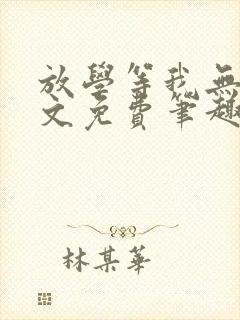 放學等我無
文免費筆趣
林某華